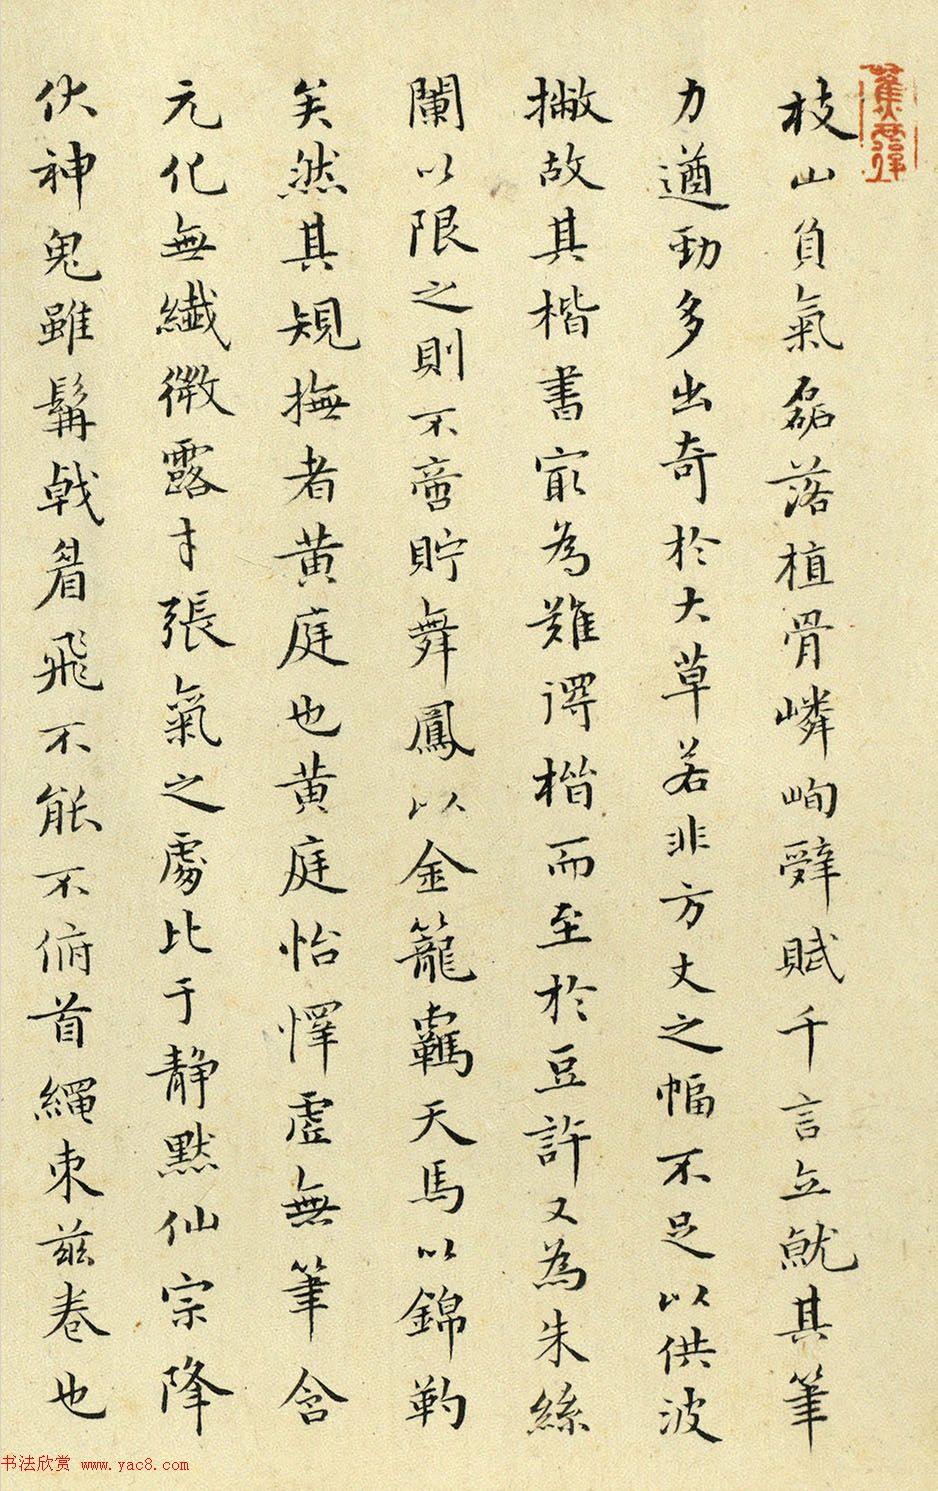 枝山負氣磊落植骨嶙峋辭賦千言立就其筆
力遒勁多出奇於大草若非方丈之幅不足以供波
撇故其楷書寂為難得楷而至於豆許又為朱絲
闌以限之則不啻貯舞鳳以金籠羈天馬以錦靮
矣然其規撫者黄庭也黄庭怡懌虛無筆含
元化無纖微露才張氣之處比于靜默仙宗降
伏神鬼雖髯戟眉飛不能不俯首繩束茲卷也
书法欣赏 www.yac8.com